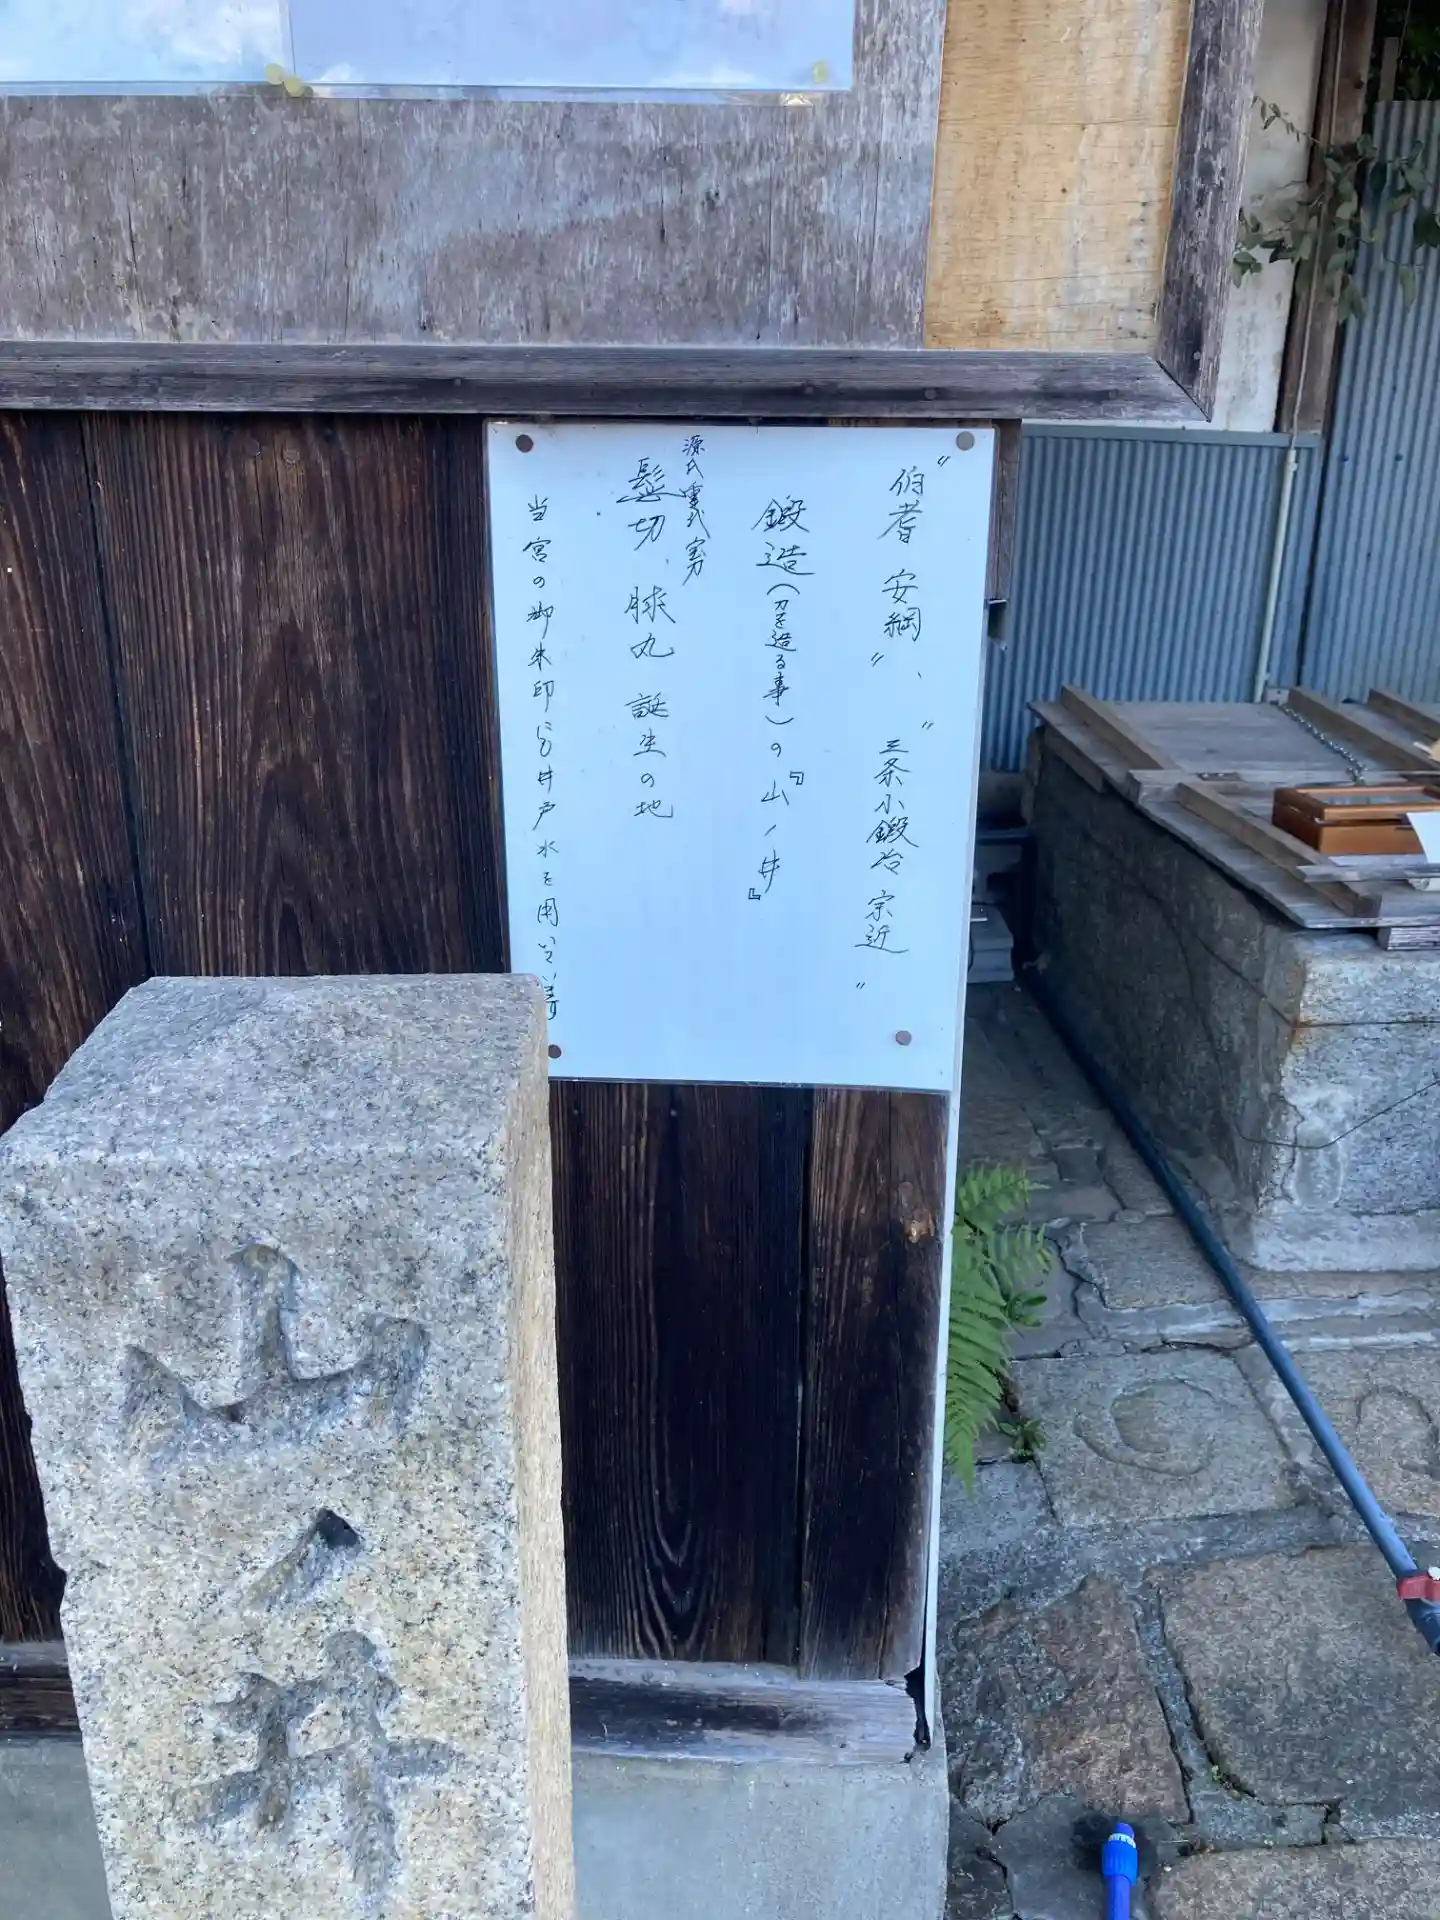 〝伯耆 安綱〟、〝三条小鍛冶 宗近〟
鍛造(刀を造る事)の『山ノ井』
源氏重代宝刀
髭切、膝丸 誕生の地
当宮の御朱印にも井戸水を用いています
山ノ井